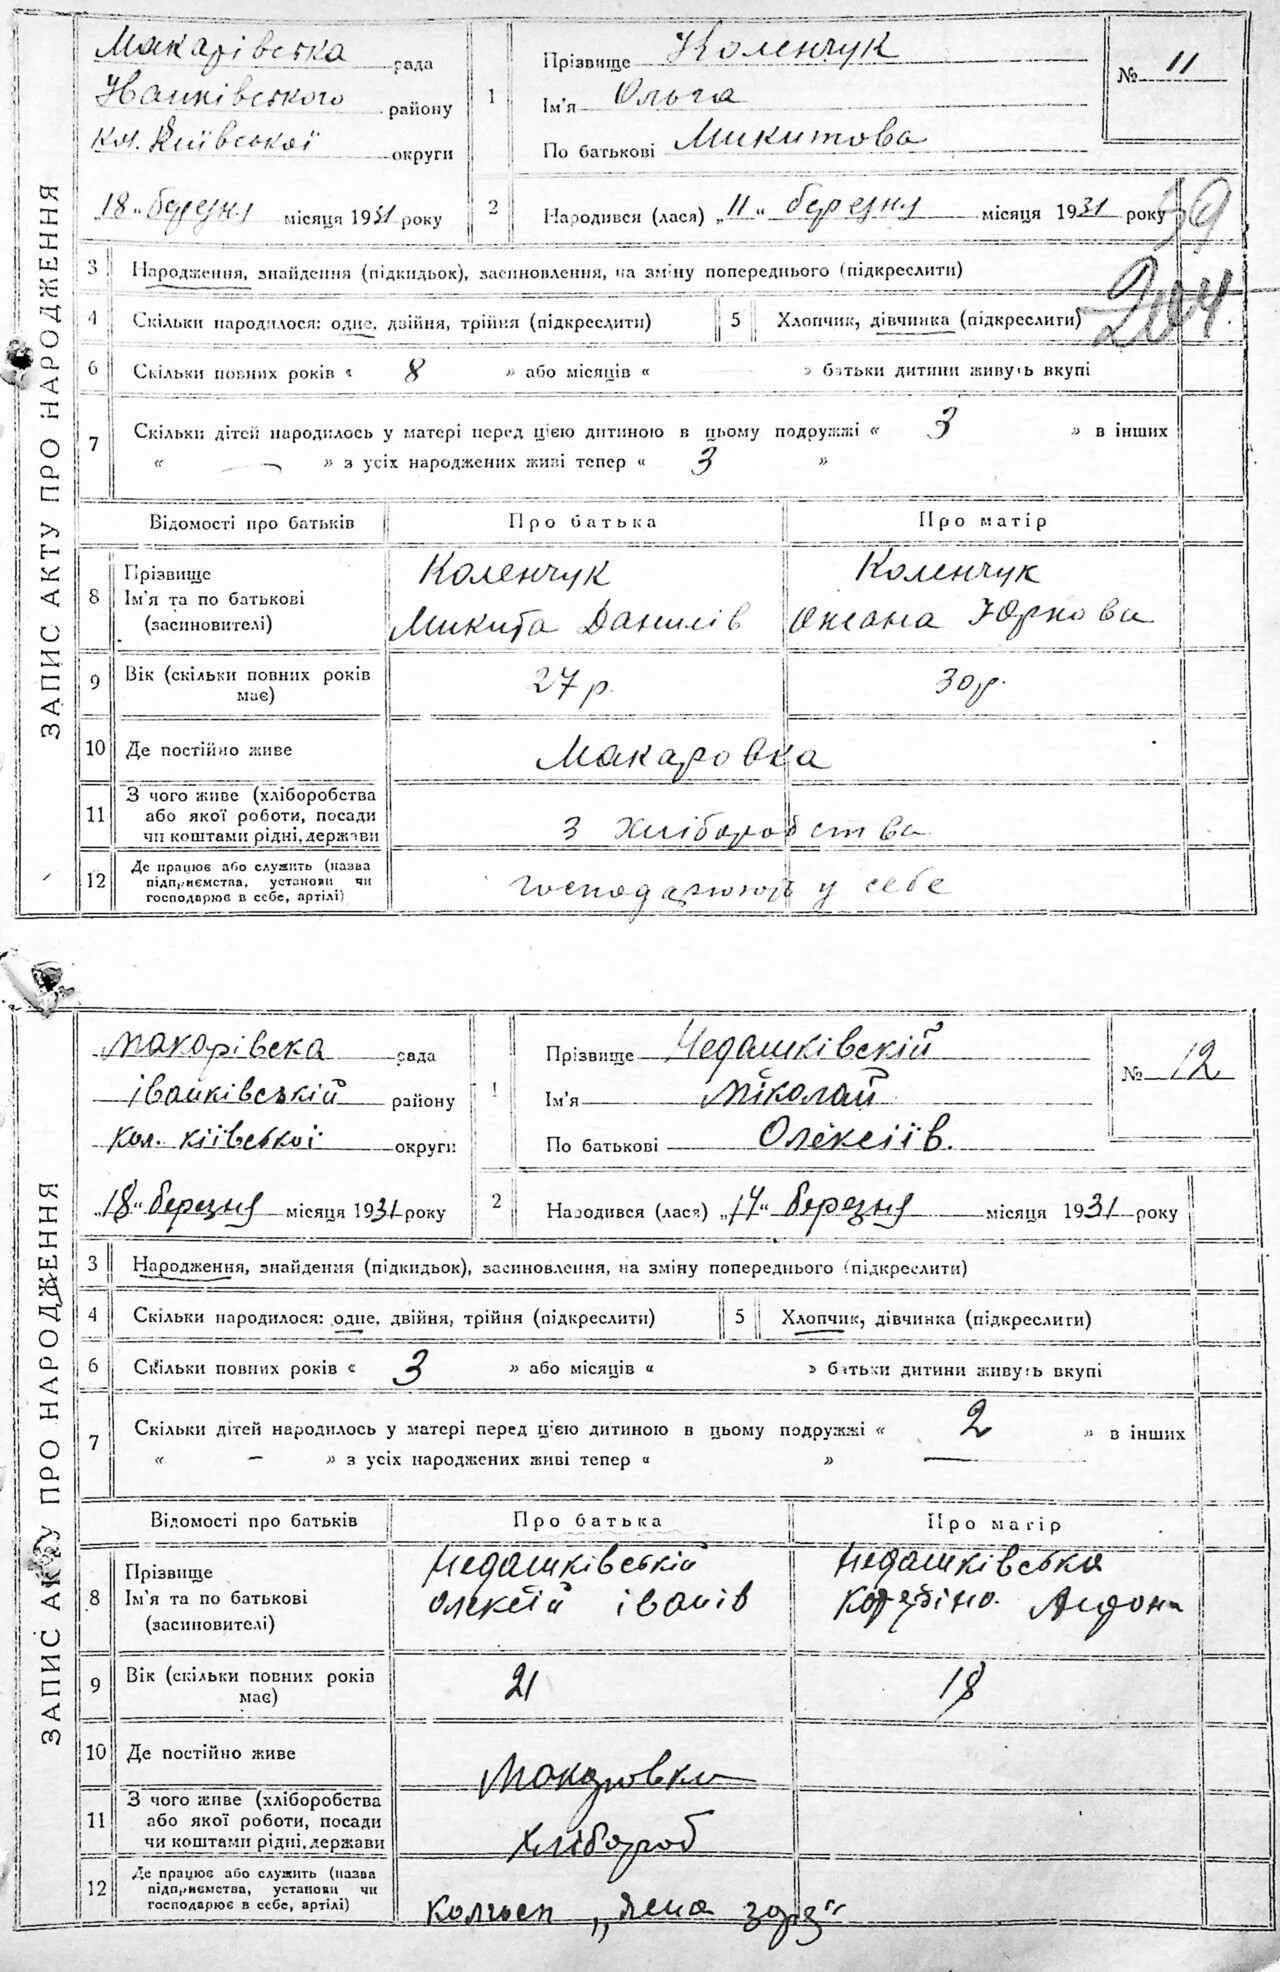 ЗАПИС АКТУ ПРО НАРОДЖЕННЯ
Макарівська рада
Іванківського району
кол. Київської округи
„18“ березня місяця 1931 року
1 Прізвище Коленчук
Ім'я Ольга
По батькові Микитова
№ 11
2 Народився (лася) „11“ березня місяця 1931 року
99
204
3 Народження, знайдення (підкидьок), засиновлення, на зміну попереднього (підкреслити)
4 Скільки народилося: одне, двійня, трійня (підкреслити) 5 Хлопчик, дівчинка (підкреслити)
6 Скільки повних років « 8 » або місяців « — » батьки дитини живуть вкупі
7 Скільки дітей народилось у матері перед цією дитиною в цьому подружжі « 3 » в інших
« — » з усіх народжених живі тепер « 3 »
Відомості про батьків Про батька Про матір
8 Прізвище Коленчук Коленчук
Ім'я та по батькові Микита Данилів Оксана Юркова
(засиновителі)
9 Вік (скільки повних років має) 27 р. 30 р.
10 Де постійно живе Макаровка
11 З чого живе (хліборобства
або якої роботи, посади
чи коштами рідні, держави З хліборобства
12 Де працює або служить (назва
підприємства, установи чи
господарює в себе, артілі) господарюють у себе
ЗАПИС АКТУ ПРО НАРОДЖЕННЯ
макарівска рада
іванківській району
кол. кіівської округи
„18“ березня місяця 1931 року
1 Прізвище Недашківскій
Ім'я Міколай
По батькові Олексіїв.
№ 12
2 Народився (лася) „14“ березня місяця 1931 року
3 Народження, знайдення (підкидьок), засиновлення, на зміну попереднього (підкреслити)
4 Скільки народилося: одне, двійня, трійня (підкреслити) 5 Хлопчик, дівчинка (підкреслити)
6 Скільки повних років « 3 » або місяців « » батьки дитини живуть вкупі
7 Скільки дітей народилось у матері перед цією дитиною в цьому подружжі « 2 » в інших
« — » з усіх народжених живі тепер « » —
Відомості про батьків Про батька Про матір
8 Прізвище Недашківській Недашківська
Ім'я та по батькові олексій іванів
(засиновителі)
9 Вік (скільки повних років має) 21 18
10 Де постійно живе Макаровка
11 З чого живе (хліборобства
або якої роботи, посади
чи коштами рідні, держави Хлібороб
12 Де працює або служить (назва
підприємства, установи чи
господарює в себе, артілі) „Ясна